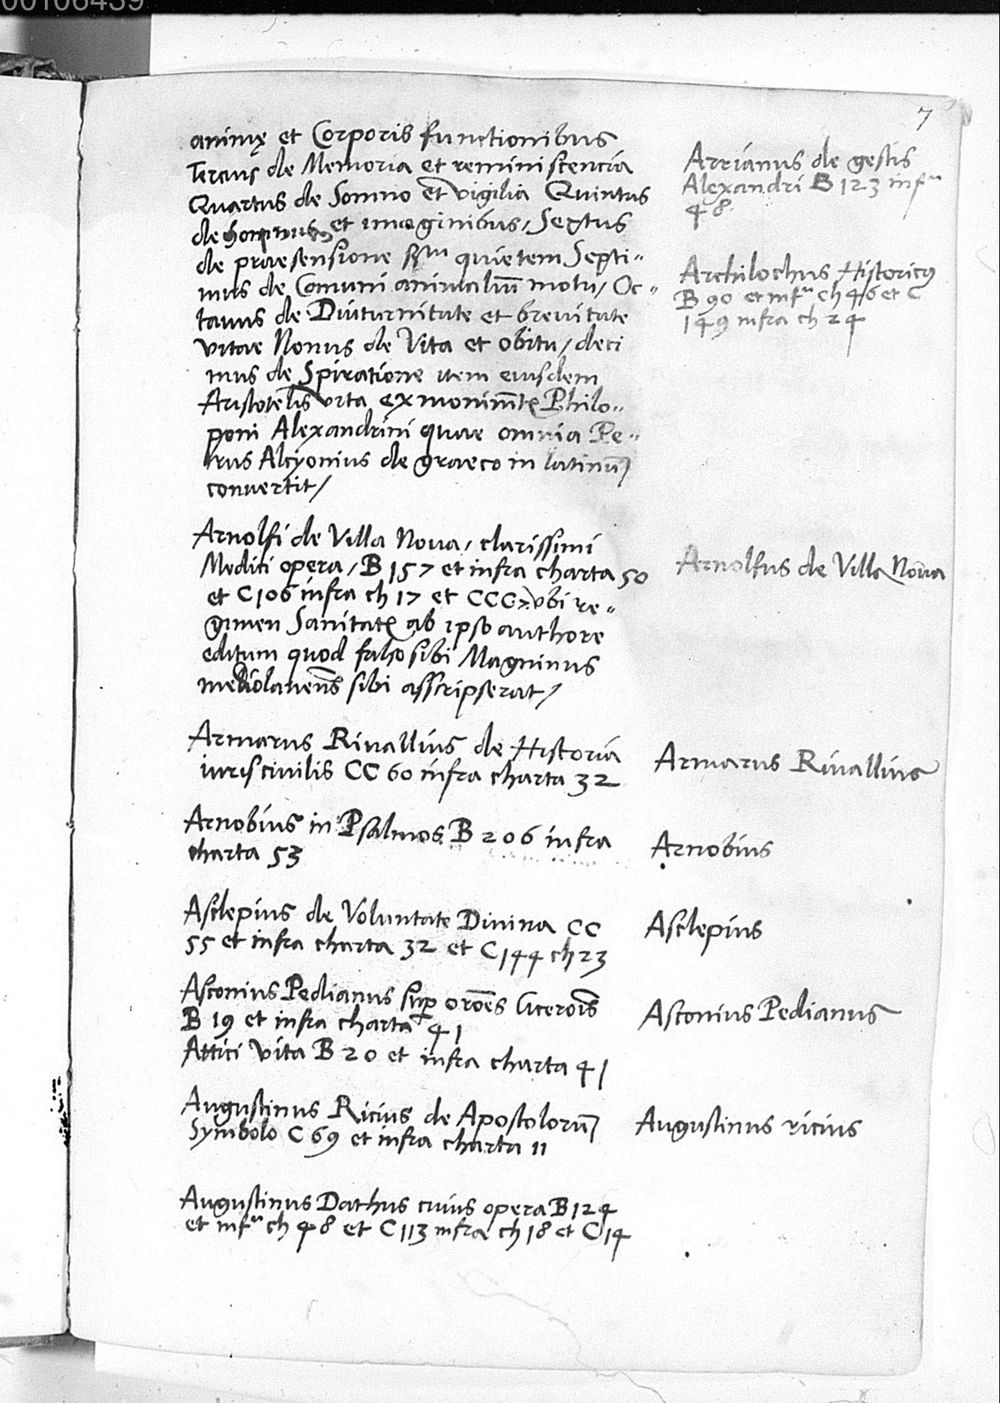 00106439
7
animę et Corporis functionibus
Tercius de Memoria et reminiscencia
Quartus de Somno et vigilia Quintus
de Somnis et imaginibus, Sextus
de praesensione quietem Septi-
mus de Comuni animaliũ motu, Oc-
tauus de Diuturnitate et breuitate
vitae Nonus de Vita et obitu, deci
mus de Spiratione item eiusdem
Aristotelis vita ex monimẽtꝭ Philo-
poni Alexandrini quae omnia Pe-
trus Alcyonius de graeco in latinũ
conuertit,
Arnolfi de Villa Noua, clarissimi
Medici opera, B 157 et infra charta 50
et C106 infra ch 17 et CCC7 vbi re-
gimen Sanitatꝭ ab ipso authore
editum quod falso sibi Magninus
mediolanensis sibi asscripserat,
Armarus Riuallius de Historia
iuris ciuilis CC 60 infra charta 32
Arnobius in Psalmos B 206 infra
charta 53
Asclepius de Voluntate Diuina CC
55 et infra charta 32 et C144 ch 23
Asconius Pedianus suꝑ orões Ciceroĩs
B 19 et infra charta 41
Attici vita B 20 et infra charta 41
Augustinus Ricius de Apostolorũ
Symbolo C 69 et infra charta 11
Augustinus Dathus cuius opera B124
et infᵃ ch 48 et C113 infra ch 18 et C14
Arrianus de gestis
Alexandri B 123 infᵃ
48
Archilochus Historicꝰ
B 90 et infᵃ ch 46 et C
149 infra ch 24
Arnolfus de Villa Noua
Armarus Riuallius
Arnobius
Asclepius
Asconius Pedianus
Augustinus ricius